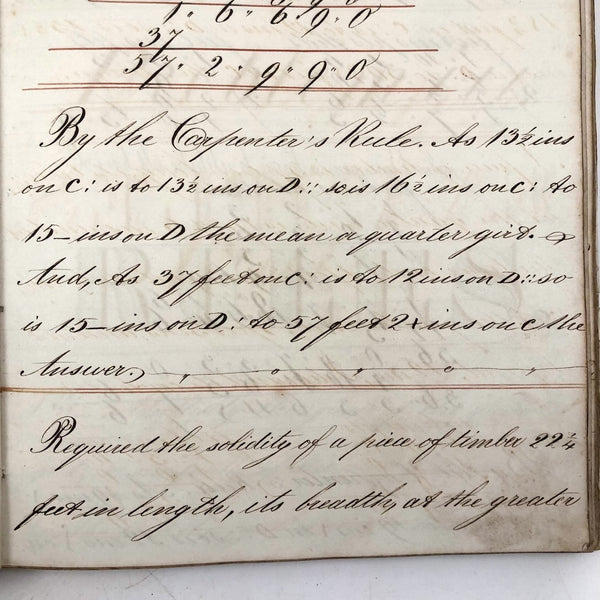 1 " 6 " 6 " 9 " 0
37
57 " 2 " 9 " 9 " 0
By the Carpenter's Rule. As 13½ ins
on C : is to 13½ ins on D :: so is 16½ ins on C : to
15 – ins on D the mean a quarter girt.
And, As 37 feet on C : is to 12 ins on D :: so
is 15 – ins on D : to 57 feet 2 + ins on C the
Answer.
Required the solidity of a piece of timber 22¼
feet in length, its breadth, at the greater